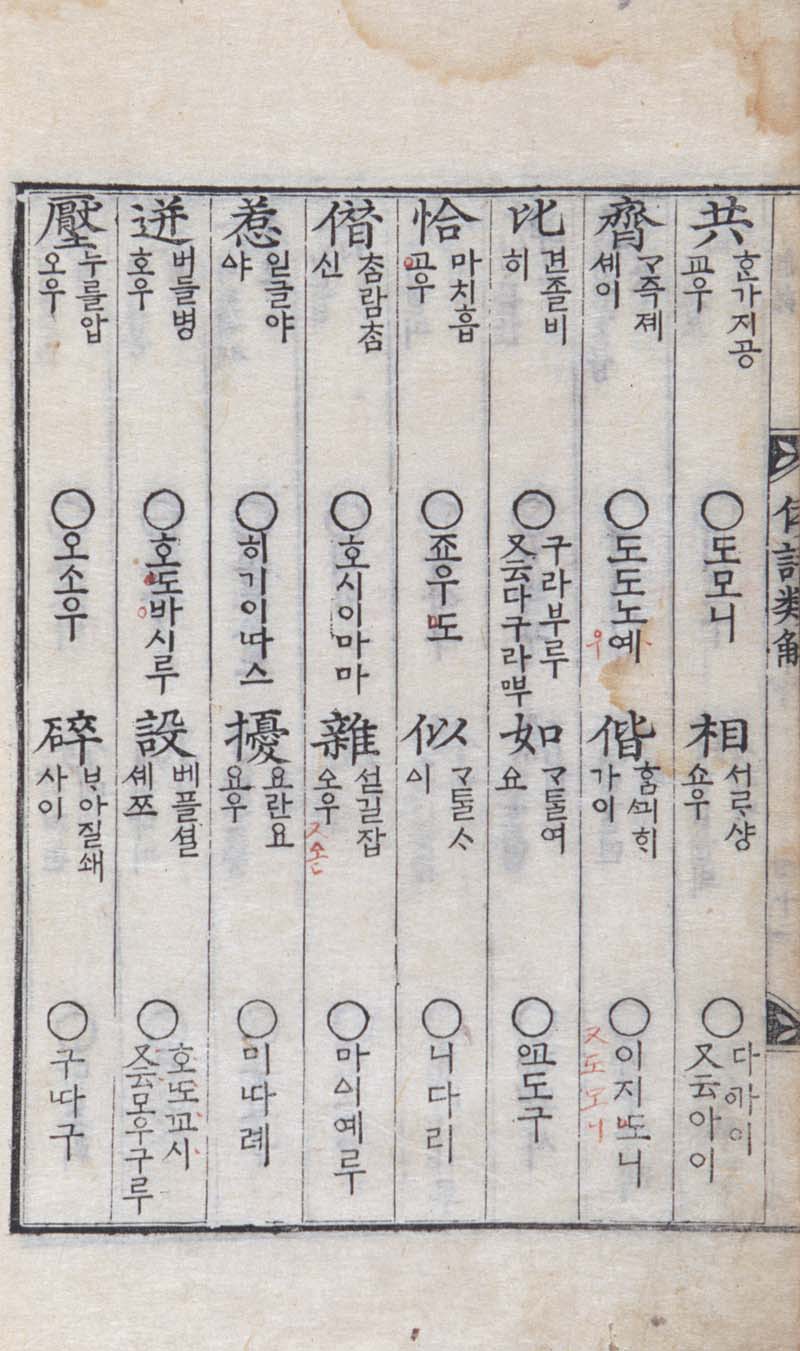 共 ᄒᆞᆫ가지공
교우
○도모니
相 서ᄅᆞ샹
쇼우
○다ᅌᅡ이
又云아이
齊 ᄀᆞ즉졔
셰이
○도도노예
우
偕 ᄒᆞᆷᄭᅴᄒᆡ
가이
○이지ᄯᅩ니
又도모니
比 견졸비
히
○구라부루
又云
如 ᄀᆞᄐᆞᆯ여
요
○
恰 마치흡
교우
○죠우ᄯᅩ
似 ᄀᆞᄐᆞᆯᄉᆞ
이
○니다리
僭 참람참
신
○호시이마마
雜 섣길잡
소우
○마ᅀᅵ예루
惹 읻글야
ᅀᅣ
○히기이ᄯᅡ스
擾 요란요
ᅀᅭ우
○미ᄯᅡ례
迸 버들병
호우
○호도바시루
設 베플셜
셰ᄶᅳ
○호ᄯᅩ교시
又云모우구루
壓 누를압
오우
○오소우
碎 ᄇᆞ아질쇄
사이
○구ᄯᅡ구
倭語類解